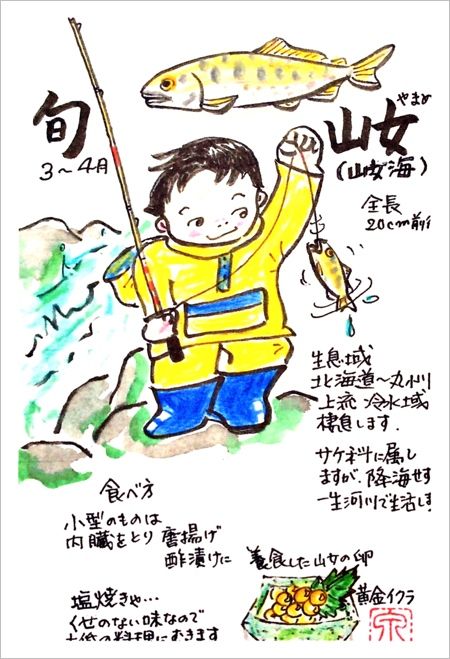 旬
3〜4月
やまめ
山女
(山女海)
全長
20cm前
生息域
北海道〜九州
上流 冷水域
棲息します.
サケ科に属し
ますが、降海せず
一生河川で生活し
食べ方
小型のものは
内臓をとり 唐揚げ
酢漬けに
塩焼きや…
くせのない味なので
の料理におきます
養食した山女の卵
黄金イクラ